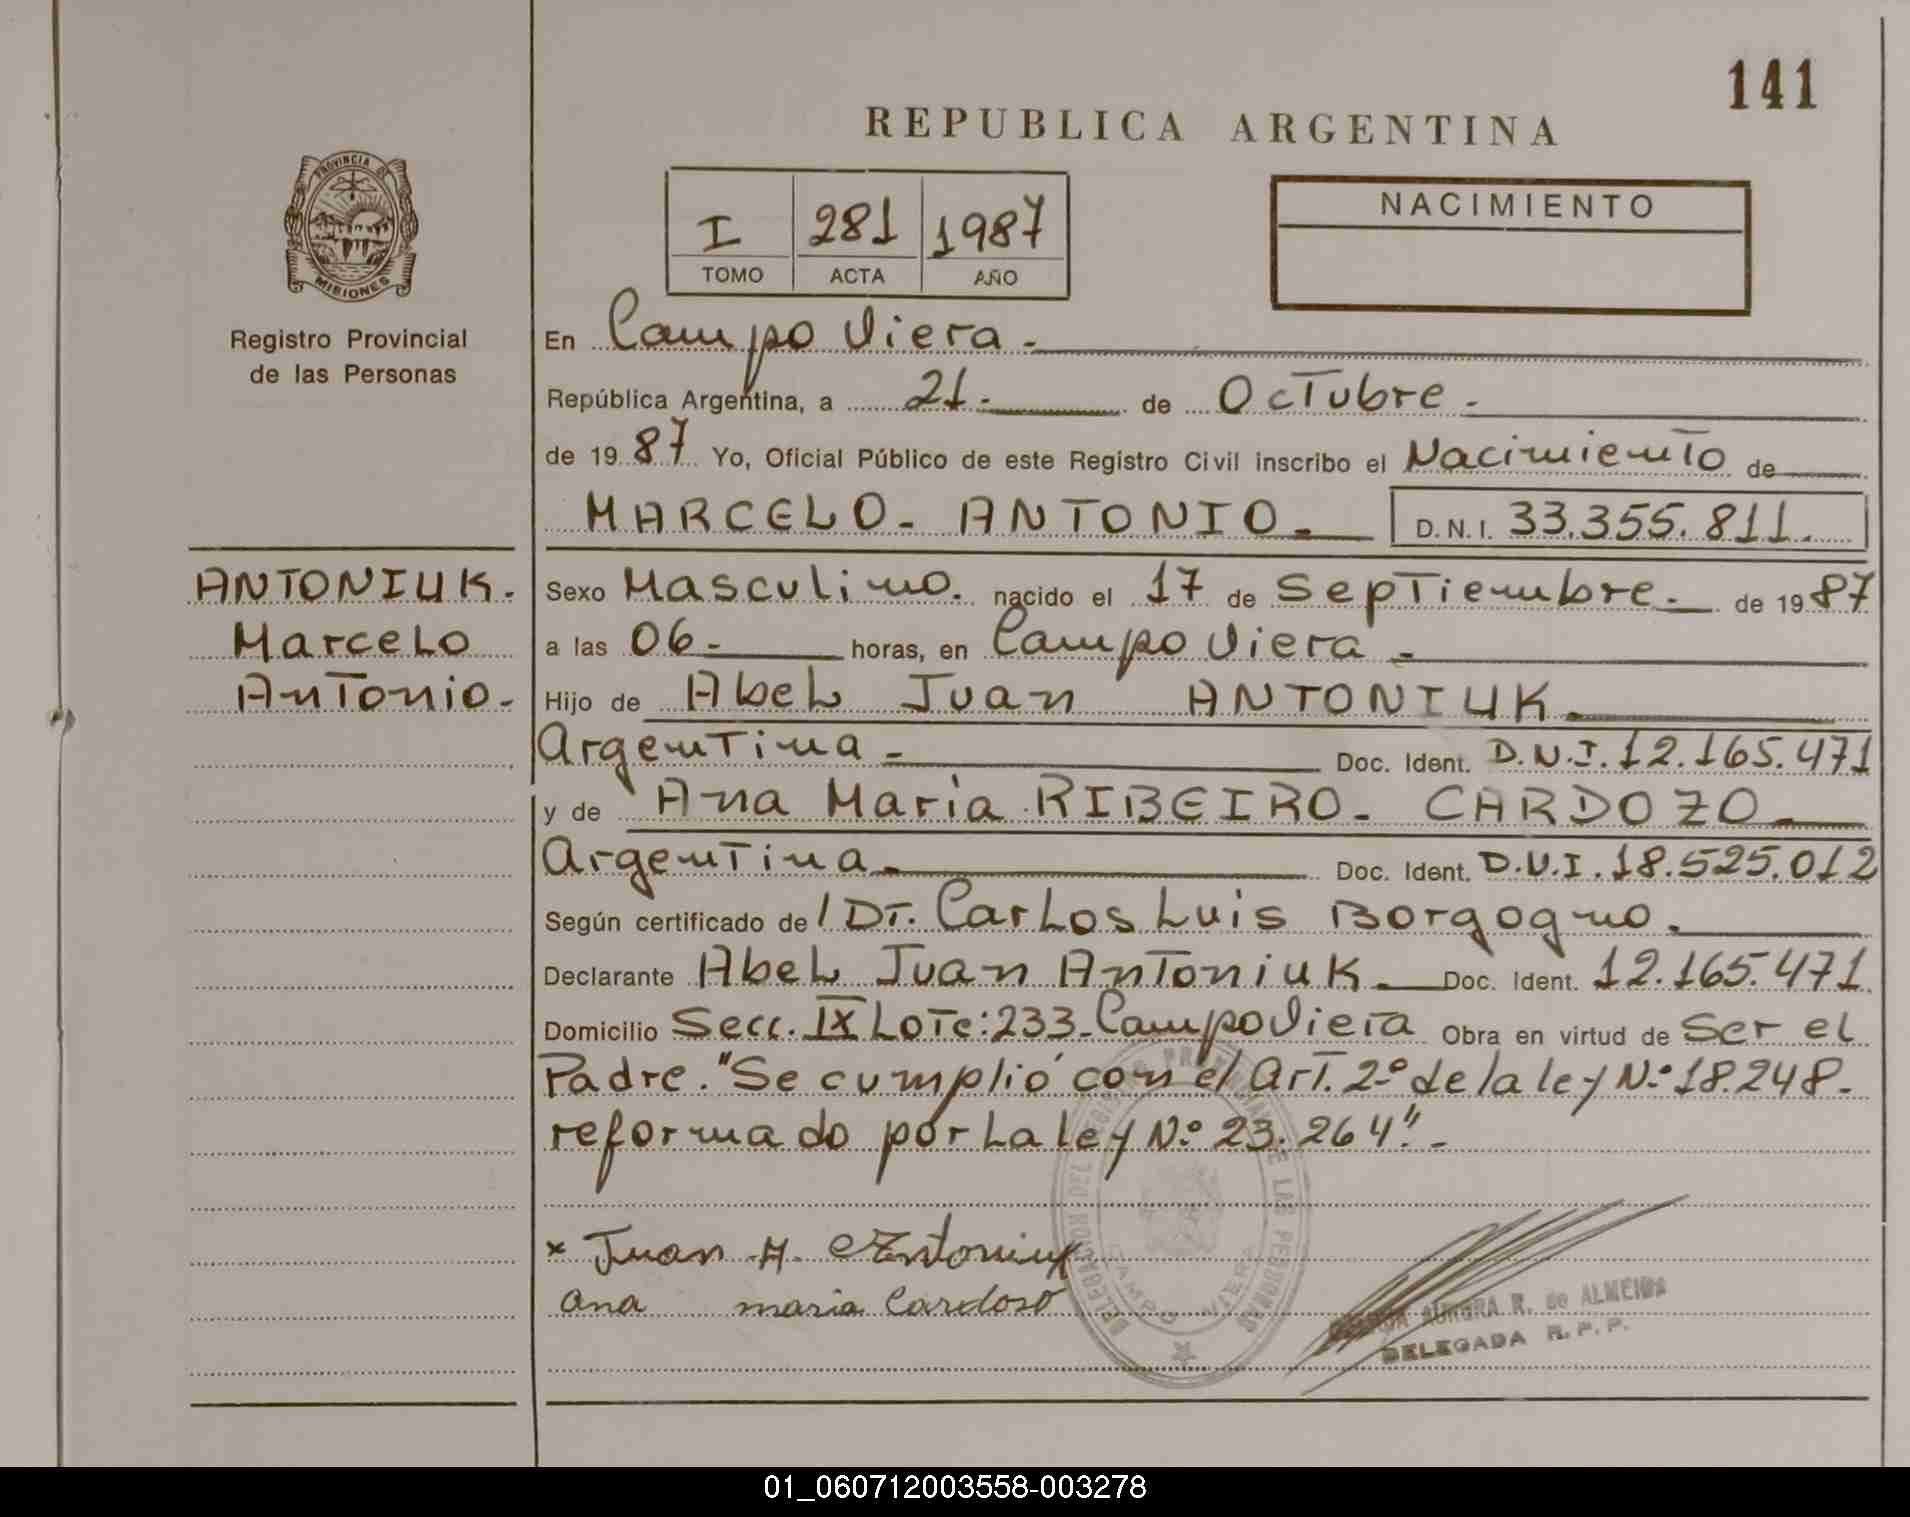 141
REPUBLICA ARGENTINA
PROVINCIA DE
MISIONES
Registro Provincial
de las Personas
I 281 1987
TOMO ACTA AÑO
NACIMIENTO
En Campo Viera.-
República Argentina, a 21.- de Octubre.-
de 1987 Yo, Oficial Público de este Registro Civil inscribo el Nacimiento de
MARCELO - ANTONIO.- D.N.I. 33.355.811.
ANTONIUK.
Marcelo
Antonio.-
Sexo Masculino. nacido el 17 de Septiembre.- de 1987
a las 06.- horas, en Campo Viera.-
Hijo de Abel Juan ANTONIUK.-
Argentina.- Doc. Ident. D.N.I. 12.165.471
y de Ana María RIBEIRO - CARDOZO.-
Argentina.- Doc. Ident. D.N.I. 18.525.012
Según certificado de / Dr. Carlos Luis Borgogno.
Declarante Abel Juan Antoniuk.- Doc. Ident. 12.165.471
Domicilio Secc. IX Lote: 233 - Campo Viera Obra en virtud de Ser el
Padre. "Se cumplió con el Art. 2º de la ley N.º 18.248 -
reformado por la ley N.º 23.264".-
x Juan A. Antoniuk
ana maria Cardoso
DELEGACION DEL REGISTRO PROVINCIAL DE LAS PERSONAS
CAMPO VIERA
AURORA R. de ALMEIDA
DELEGADA R.P.P.
01_060712003558-003278